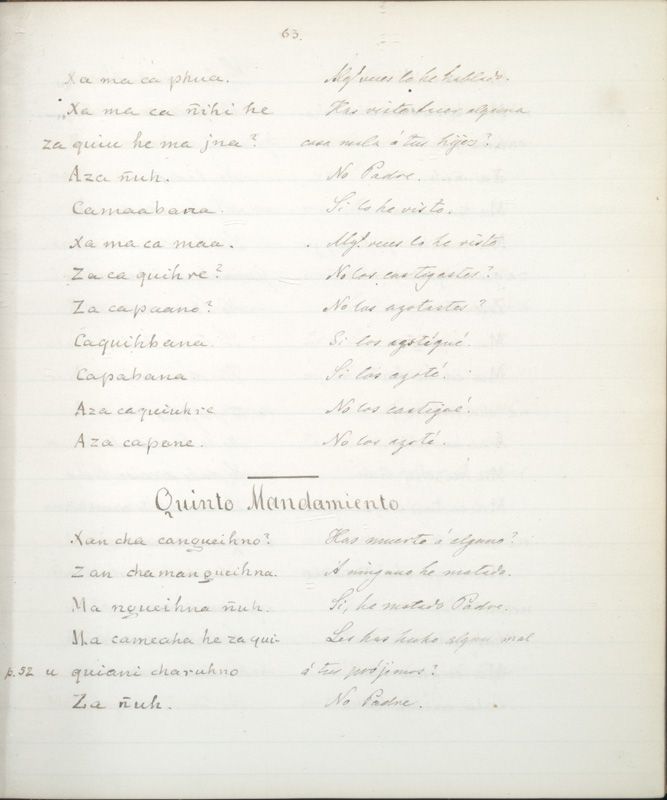 63.
Xa ma ca phua. Algs veces lo he hablado.
Xa ma ca ñihi he Has visto hacer alguna
za quiu he ma jna? cosa mala á tus hijos?
Aza ñuh. No Padre.
Camaabana. Si lo he visto.
Xa ma ca maa. Algs veces lo he visto
Za ca quihre? No los castigastes?
Za capaano? No los azotastes?
Caquihbana. Si los castigué.
Capabana Si los azoté.
Aza caquiuhre No los castigué.
Aza capane. No los azoté.
Quinto Mandamiento
Xan cha cangueihno? Has muerto á alguno?
Zan chamangueihna. á ninguno he matado.
Ma ngueihna ñuh. Si, he matado Padre.
Ma cameaha he za qui- Les has hecho algun mal
p. 52 u quiani charuhno á tus prójimos?
Za ñuh. No Padre.